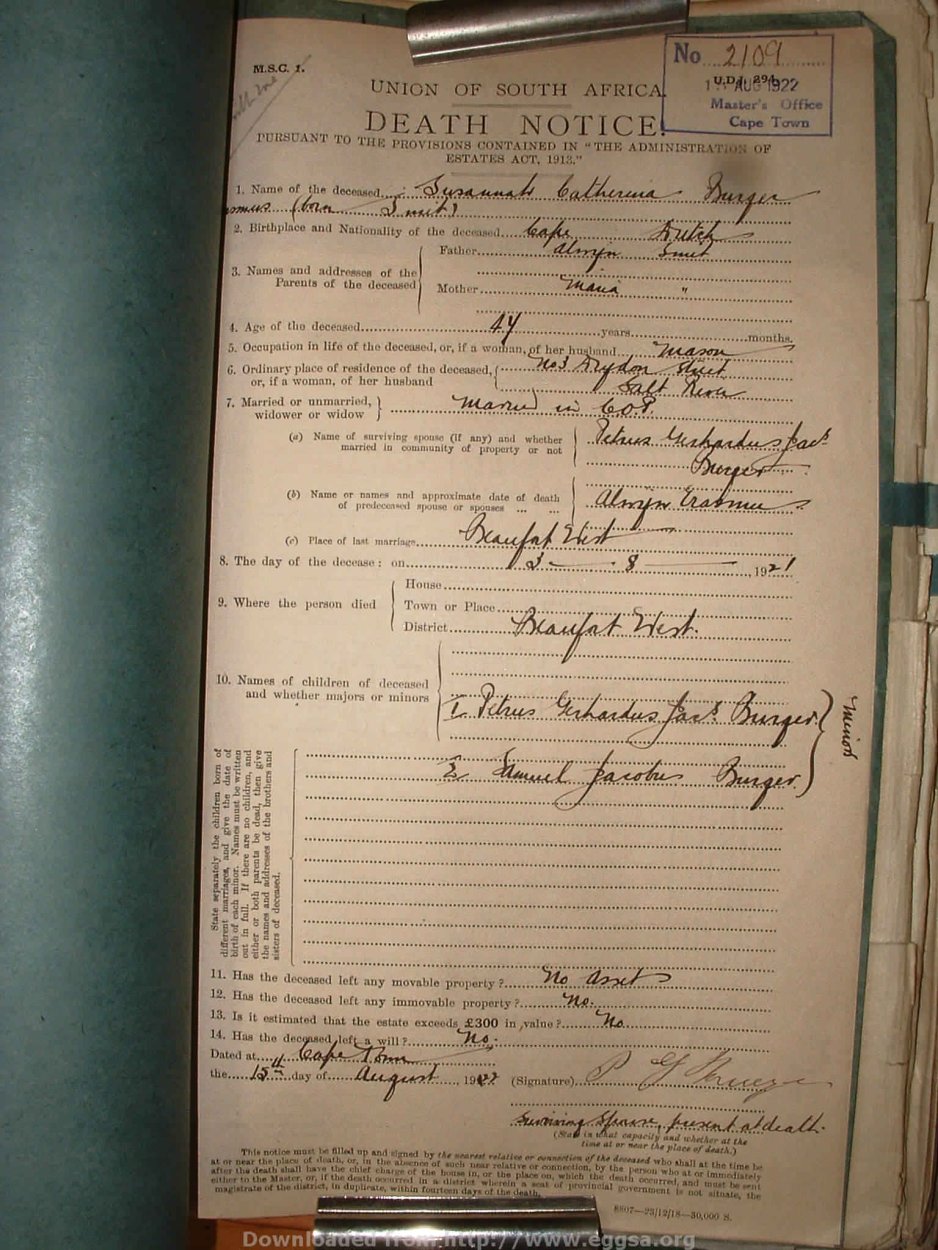 M.S.C. 1.
No 2109
U.D.J. 294
AUG 1922
Master's Office
Cape Town
UNION OF SOUTH AFRICA.
DEATH NOTICE.
PURSUANT TO THE PROVISIONS CONTAINED IN "THE ADMINISTRATION OF
ESTATES ACT, 1913."
1. Name of the deceased Susannah Catherina Burger
(born Smit)
2. Birthplace and Nationality of the deceased Cape Dutch
3. Names and addresses of the Parents of the deceased
Father Alwyn Smit
Mother Maria "
4. Age of the deceased 44 years months.
5. Occupation in life of the deceased, or, if a woman, of her husband Mason
6. Ordinary place of residence of the deceased, No 3 Drydon Street
or, if a woman, of her husband Salt River
7. Married or unmarried, widower or widow Married in C.O.P.
(a) Name of surviving spouse (if any) and whether Petrus Gerhardus Jacs
married in community of property or not Burger
(b) Name or names and approximate date of death Alwyn Erasmus
of predeceased spouse or spouses ... ...
(c) Place of last marriage Beaufort West
8. The day of the decease: on 3 - 8 - 1921
9. Where the person died
House
Town or Place
District Beaufort West.
10. Names of children of deceased
and whether majors or minors
1 Petrus Gerhardus Jacs Burger
2 Samuel Jacobus Burger
minor
State separately the children born of
different marriages, and give the date of
birth of each minor. Names must be written
out in full. If there are no children, and
either or both parents be dead, then give
the names and addresses of the brothers and
sisters of deceased.
11. Has the deceased left any movable property? No assets
12. Has the deceased left any immovable property? No.
13. Is it estimated that the estate exceeds £300 in value? No
14. Has the deceased left a will? No.
Dated at Cape Town
the 15th day of August 1922 (Signature) P G
surviving spouse, present at death.
(State in what capacity and whether at the
time at or near the place of death.)
This notice must be filled up and signed by the nearest relative or connection of the deceased who shall at the time be
at or near the place of death, or, in the absence of such near relative or connection, by the person who at or immediately
after the death shall have the chief charge of the house in, or the place on, which the death occurred, and must be sent
either to the Master, or, if the death occurred in a district wherein a seat of provincial government is not situate, the
magistrate of the district, in duplicate, within fourteen days of the death.
8807—23/12/18—50,000 S.
Downloaded from http://www.eggsa.org